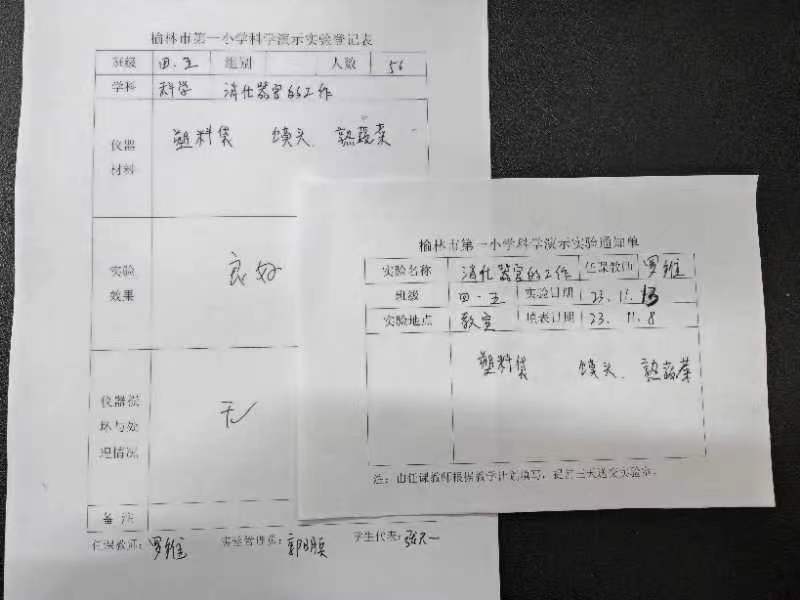 榆林市第一小学科学演示实验登记表
班级 四.五 组别 人数 56
学科 科学 消化器官的工作
仪器材料 塑料袋 馍头、熟蔬菜
实验效果 良好
仪器损坏与处理情况 无
备注
任课教师：罗维 实验管理员： 学生代表：
榆林市第一小学科学演示实验通知单
实验名称 消化器官的工作 任课教师 罗维
班级 四.五 实验日期 23.11.13
实验地点 教室 填表日期 23.11.8
塑料袋 馍头、熟蔬菜
注：由任课教师根据教学计划填写，提前三天送交实验室。